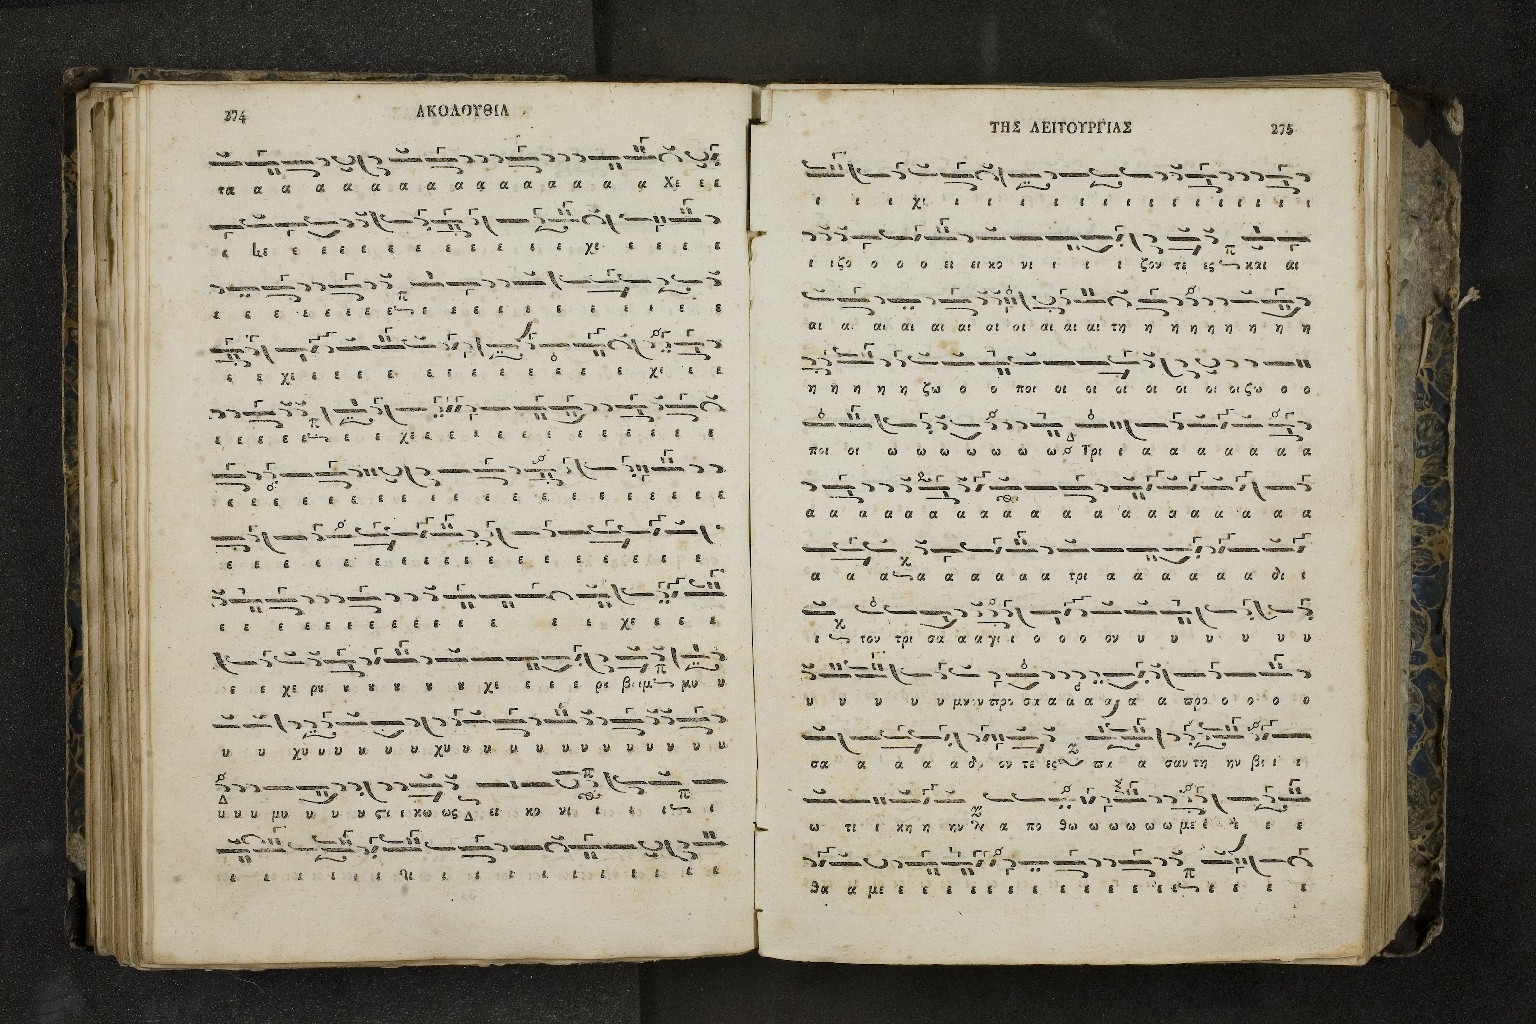 274
ΑΚΟΛΟΥΘΙΑ
τα α α α α α α α α α α α α α α α α Χε ε ε
ε ε ε ε ε ε ε ε ε ε ε ε ε χε ε ε ε ε
ε ε ε ε ε ε ε ε ε ε ε ε ε ε ε ε ε ε
ε ε χε ε ε ε ε ε ε ε ε ε ε ε ε χε ε ε
ε ε ε ε ε ε ε ε χε ε ε ε ε ε ε ε ε ε ε
ε ε ε ε ε ε ε ε ε ε ε ε ε ε ε ε ε ε
ε ε ε ε ε ε ε ε ε ε ε ε ε ε ε ε
ε ε ε ε ε ε ε ε ε ε ε ε ε χε ε ε ε
ε ε χε ρυ υ υ υ υ υ χε ε ε ε ρυ βειμ μυ υ
υ υ χυ υ υ υ υ υ χυ υ υ υ υ υ υ υ υ υ υ υ
υ υ υ μυ υ υ υ ςι ι κω ως ει κο νι ι ι ι ι
ι ι ι ι ι χι ι ι ι ι ι ι ι ι ι ι
ΤΗΣ ΛΕΙΤΟΥΡΓΙΑΣ
275
ι ι ι χι ι ι ι ι ι ι ι ι ι ι ι ι ι
ι ιζο ο ο ο ει εικο νι ι ι ι ι ζον τε ες και αι
αι αι αι αι αι αι αι αι αι αι αι τη η η η η η η η η
η η η η η ζω ο ο ποι οι οι οι οι οι οι οι οιζω ο ο
ποι οι ω ω ω ω ω ω ω Τρι ι α α α α α α α α
α α α α α α α α α α α α α α α α α α α
α α α α α α α α α τρι α α α α α α δι ι
ι τον τρι σα α αγι ι ο ο ο ον υ υ υ υ υ υ υ
υ υ υ υ υ μνονπρο σα α α α α α α προ ο ο ο ο
σα α α α α δο ον τε ες πα α σαντη ην βι ι ι
ω τι ι κη η ην α πο θω ω ω ω ω ω με ε ε ε ε
θα α με ε ε ε ε ε ε ε ε ε ε ε ε ε ε ε ε ε